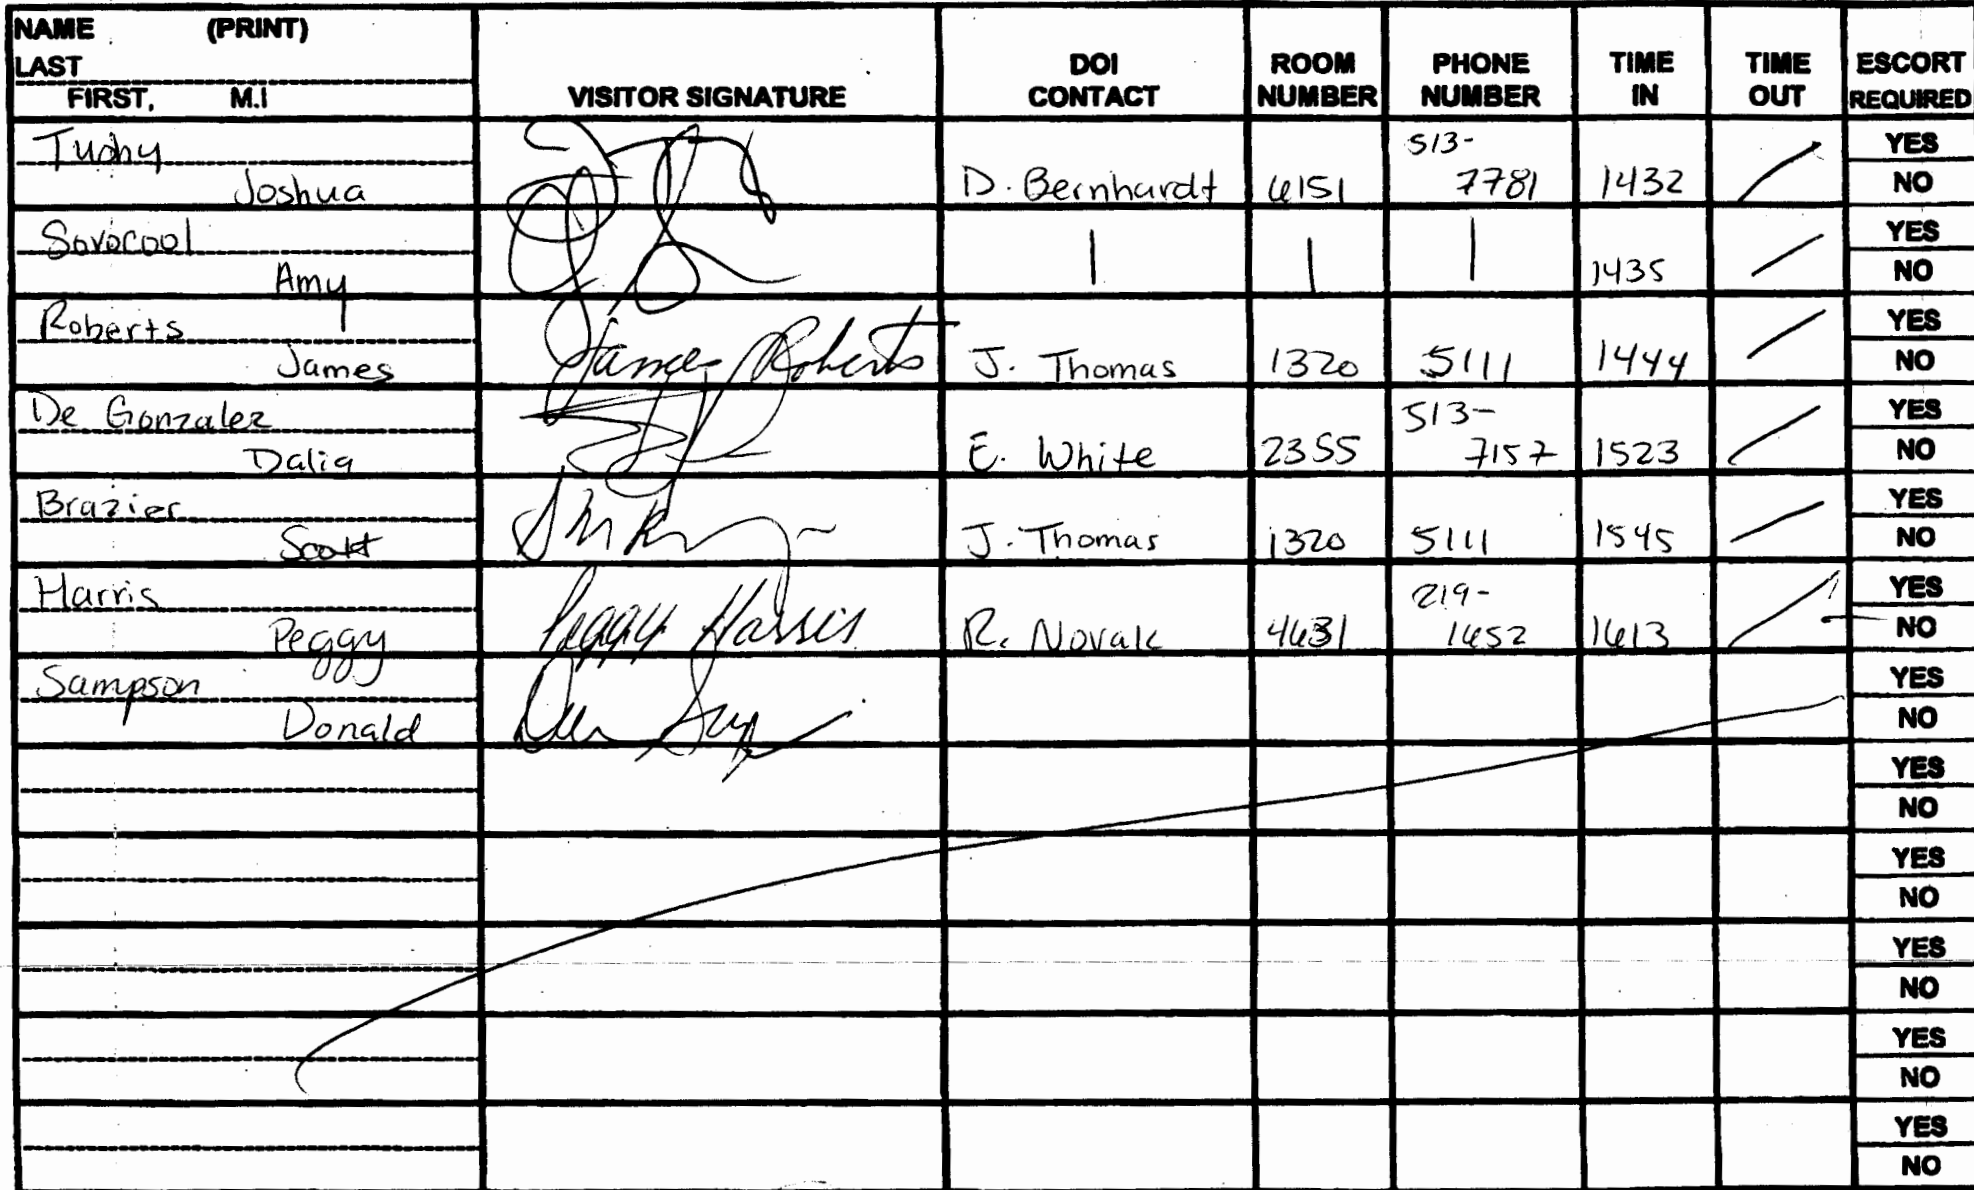 NAME (PRINT)
LAST
FIRST, M.I
VISITOR SIGNATURE
DOI CONTACT
ROOM NUMBER
PHONE NUMBER
TIME IN
TIME OUT
ESCORT REQUIRED
Tuohy 513- YES
Joshua D. Bernhardt 6151 7781 1432 NO
Sovocool YES
Amy 1435 NO
Roberts YES
James James Roberts J. Thomas 1320 5111 1444 NO
De Gonzalez 513- YES
Dalia E. White 2355 7157 1523 NO
Brazier YES
Scott J. Thomas 1320 5111 1545 NO
Harris 219- YES
Peggy Peggy Harris R. Novak 4631 1652 1613 NO
Sampson YES
Donald NO
YES
NO
YES
NO
YES
NO
YES
NO
YES
NO